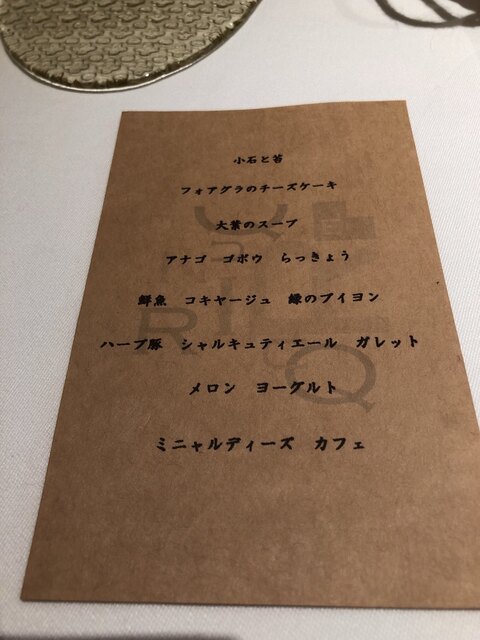 小石と苔
フォアグラのチーズケーキ
大葉のスープ
アナゴ　ゴボウ　らっきょう
鮮魚　コキヤージュ　緑のブイヨン
ハーブ豚　シャルキュティエール　ガレット
メロン　ヨーグルト
ミニャルディーズ　カフェ